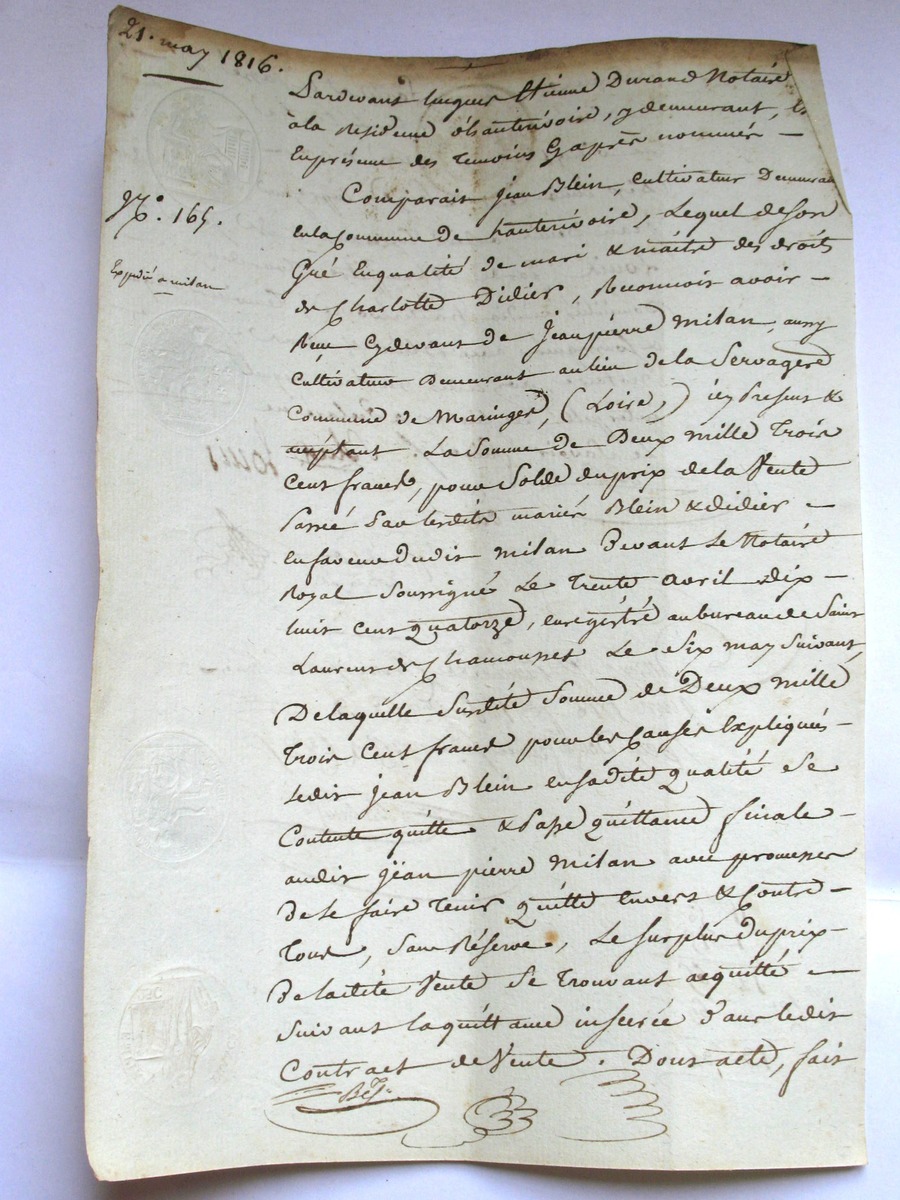 21. may 1816.
Pardevant Jacques Etiénne Durand Notaire
à la Residence d'hauterivoire, y demeurant, &
En présence des Temoins Cy après nommés —
N.o 165.
Comparait Jean Blein, Cultivateur Demeurant
en la Commune de hauterivoire, Lequel de son
Gré En qualité de mari & maitre des droits
Expédié a milan
de Charlotte Didier, Reconnoit avoir —
Reçu Cy devant de Jean pierre milan, aussy
Cultivateur Demeurant au lieu de la Servagere
Commune de Maringes, (Loire,) icy Present &
acceptant La Somme de Deux mille Trois
Cent francs, pour Solde du prix de la Vente
Passé Par lesdits mariés Blein & didier —
en faveur dudit milan Devant Le Notaire
Royal Soussigné Le Trente avril dix —
huit cent Quatorze, enregistré au bureau de Saint
Laurent de Chamousset Le Six may Suivant,
De laquelle Susdite Somme de Deux mille
Trois Cent francs pour les Causes Expliqués —
Ledit Jean Blein en sadite qualité Se
Contente quitte & Passe quittance finale —
audit jean pierre Milan avec promesses
De le faire Tenir quitte Envers & Contre —
Tous, Sans Réserve, Le Surplus du prix —
De ladite Vente Se Trouvant acquitté —
Suivant la quittance inserée Dans ledit
Contract de Vente. Dont acte, fait